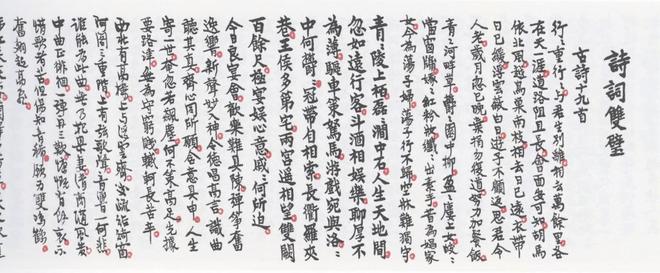 詩詞雙璧
古詩十九首
行〻重行〻與君生別離相去萬餘里各
在天一涯道路阻且長會面安可知胡馬
依北風越鳥巢南枝相去日已遠衣帶
日已緩浮雲蔽白日遊子不顧返思君令
人老歲月忽已晚棄捐勿復道努力加餐飯
青〻河畔草鬱〻園中柳盈〻樓上女皎〻
當窗牖娥〻紅粉妝纖〻出素手昔為倡家
女今為蕩子婦蕩子行不歸空牀難獨守
青〻陵上柏磊〻澗中石人生天地間
忽如遠行客斗酒相娛樂聊厚不
為薄驅車策駑馬游戲宛與洛〻
中何鬱〻冠帶自相索長衢羅夾
巷王侯多第宅兩宮遙相望雙闕
百餘尺極宴娛心意戚〻何所迫
今日良宴會歡樂難具陳彈箏奮
逸響新聲妙入神令德唱高言識曲
聽其真齊心同所願含意俱申人生
寄一世奄忽若飆塵何不策高足先據
要路津無為守窮賤轗軻長苦辛
西北有高樓上與浮雲齊交疏結綺窗
阿閣三重階上有絃歌聲音響一何悲
誰能為此曲無乃杞梁妻清商隨風發
中曲正徘徊一彈再三歎慷慨有餘哀不
惜歌者苦但傷知音稀願為雙鴻鵠
奮翅起高飛